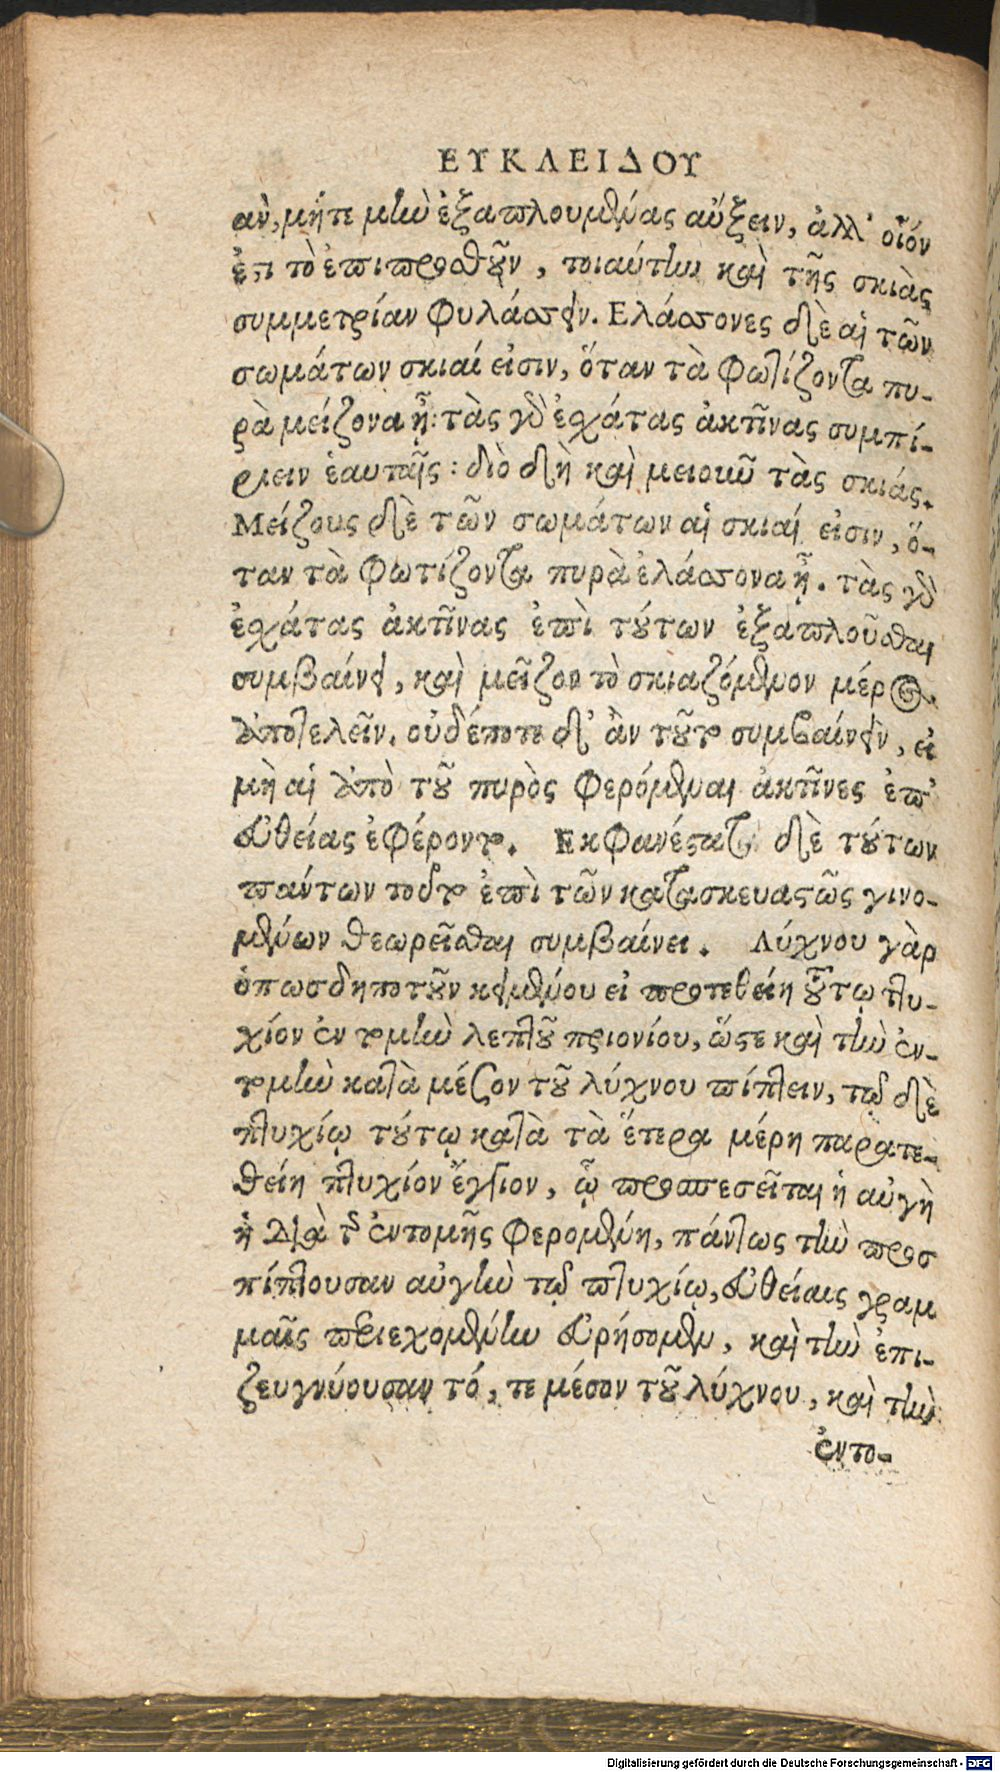 ΕΥΚΛΕΙΔΟΥ
αὐ, μήτε μὴν ἐξαπλουμένας αὔξειν, ἀλλ' οἷόν
ἐπι τὸ ἐπιπροσθοῦν, τοιαύτην καὶ τῆς σκιὰς
συμμετρίαν φυλάσσειν. Ελάσσονες δὲ αἱ τῶν
σωμάτων σκιαί εἰσιν, ὅταν τὰ φωτίζοντα πυ-
ρὰ μείζονα ᾖ: τὰς γὰρ ἐσχάτας ἀκτῖνας συμπί-
πτειν ἑαυταῖς: διὸ δὴ καὶ μειοῦν τὰς σκιάς.
Μείζους δὲ τῶν σωμάτων αἱ σκιαί εἰσιν, ὅ-
ταν τὰ φωτίζοντα πυρὰ ἐλάσσονα ᾖ. τὰς γὰρ
ἐσχάτας ἀκτῖνας ἐπὶ τούτων ἐξαπλοῦσθαι
συμβαίνει, καὶ μεῖζον τὸ σκιαζόμενον μέρος
ἀποτελεῖν. οὐδέποτε δ' ἂν τοῦτο συμβαίνειν, εἰ
μὴ αἱ ἀπὸ τοῦ πυρὸς φερόμεναι ἀκτῖνες ἐπ'
εὐθείας ἐφέροντο. Εκφανέστατα δὲ τούτων
πάντων τοῦτο ἐπὶ τῶν κατασκευαστῶς γινο-
μένων θεωρεῖσθαι συμβαίνει. Λύχνου γὰρ
ὁπωσδηποτοῦν κειμένου εἰ προτεθείη οὕτῳ πτυ-
χίον ἐντομὴν λεπτοῦ πριονίου, ὥστε καὶ τὴν ἐν-
τομὴν κατὰ μέσον τοῦ λύχνου πίπτειν, τῷ δὲ
πτυχίῳ τούτῳ κατὰ τὰ ἕτερα μέρη παρατε-
θείη πτυχίον ἔγγιον, ᾧ προσπεσεῖται ἡ αὐγὴ
ἡ διὰ τῆς ἐντομῆς φερομένη, πάντως τὴν προσ
πίπτουσαν αὐγὴν τῷ πτυχίῳ, εὐθείαις γραμ
μαῖς περιεχομένην εὑρήσομεν, καὶ τὴν ἐπι-
ζευγνύουσαν τό, τε μέσον τοῦ λύχνου, καὶ τὴν
ἐντο-
Digitalisierung gefördert durch die Deutsche Forschungsgemeinschaft - DFG